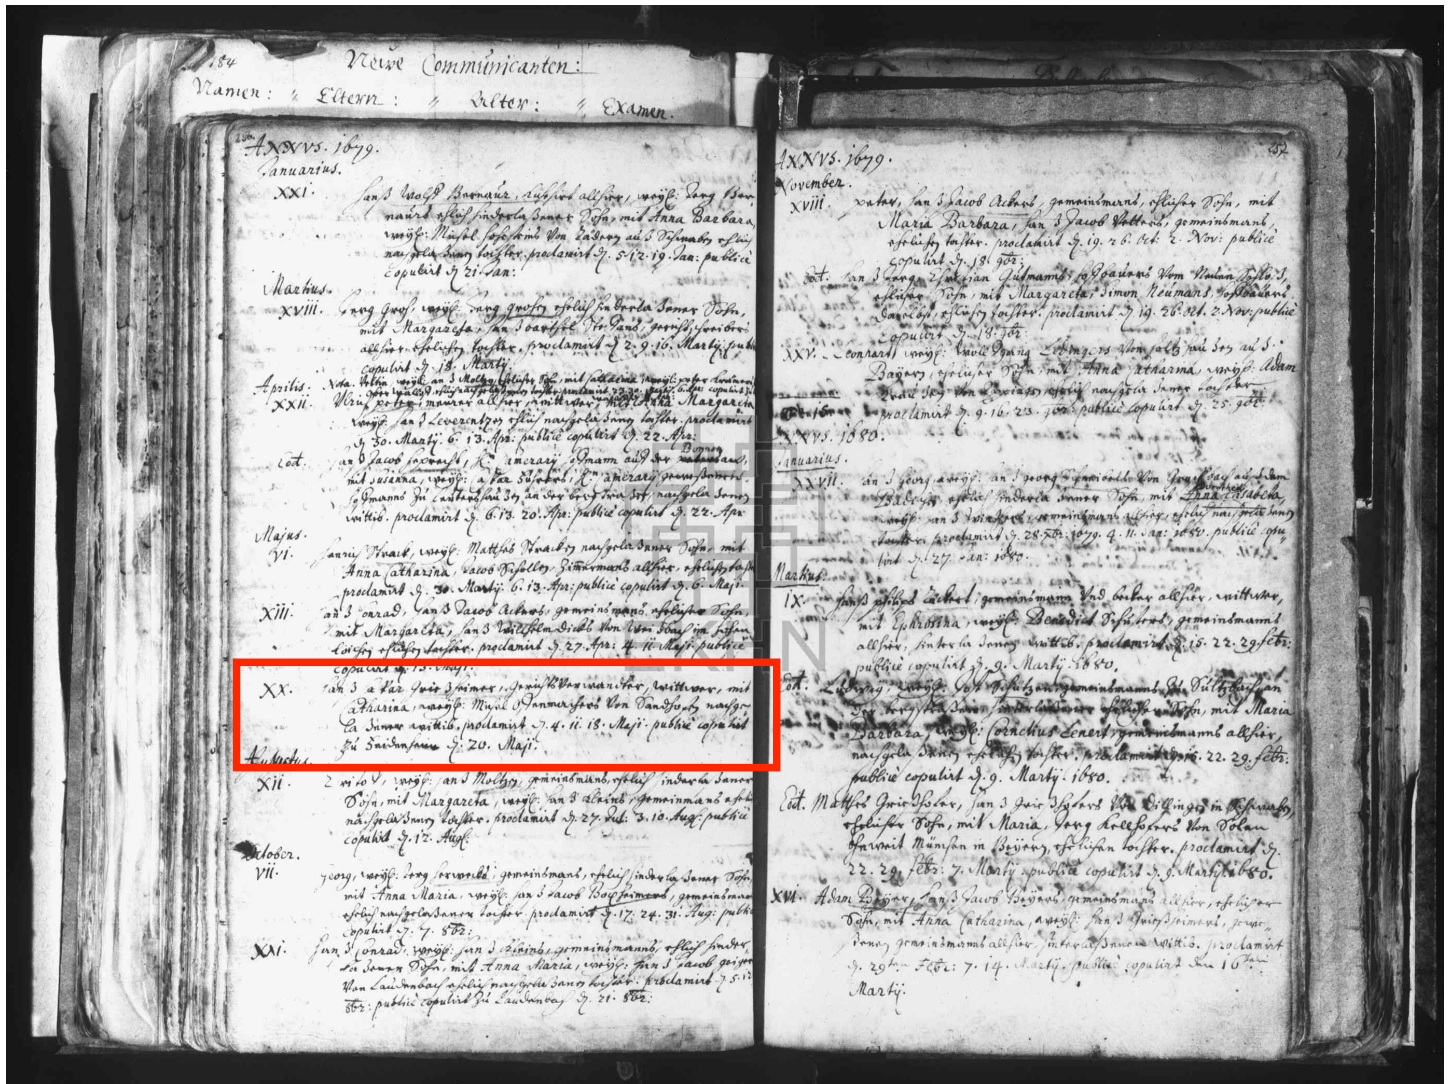 184
Newe Communicanten:
Namen: " Eltern: " Alter: " Examen.
ANNVS. 1679.
Januarius.
XXI. Hanß Wolff Bernaur, Kuhhirt allhier, weyl: Jerg Ber-
naurs ehlich hinderlaßener Sohn, mit Anna Barbara
weyl: Michel von auß Schwaben ehlich
nachgelaßenen tochter. proclamirt d. 5. 12. 19. Jan: publicè
copulirt d. 21. Jan:
Martius.
XVIII. Jerg Groß, weyl: Jerg Großen ehelich hinderlaßener Sohn,
mit Margareta, Hanß gerichtschreibers
allhier ehelichen tochter. proclamirt d. 2. 9. 16. Martij: publ
copulirt d. 18. Martij.
Aprilis.
XXII. peter, maurer allhier, wittwer, mit Anna Margareta
weyl: Hanß Leverentzen ehlich nachgelaßenen tochter. proclamirt
d. 30. Martij. 6. 13. Apr: publicè copulirt d. 22. Apr:
Eod. Hanß Jacob hofmann auff der
mit Susanna, weyl:
hofmanns zu an der bergstraßen, nachgelaßenen
wittib. proclamirt d. 6. 13. 20. Apr: publicè copulirt d. 22. Apr
Majus.
VI. Henrich Strack, weyl: Matthes Stracken nachgelaßener Sohn, mit
Anna Catharina, Jacob Schollen, Zimmermans allhier, ehelichen tochter
proclamirt d. 30. Martij. 6. 13. Apr: publicè copulirt d. 6. Maji.
XIII. Hanß Conrad, Hanß Jacob Ackers, gemeinsmans, ehelicher Sohn,
mit Margareta, Hanß Willhelm Dicks von
ehlichen tochter. proclamirt d. 27. Apr: 4. 11. Maji. publicè
copulirt d. 13. Maji.
XX. Hanß Caspar Grießheimer, Gerichtsverwandter, wittwer, mit
Catharina, weyl: Michel von Sandhofen nachge-
laßener wittib. proclamirt d. 4. 11. 18. Maji. publicè copulirt
zu d. 20. Maji.
Augustus.
XII. weyl: Hanß Moltzen, gemeinsmans, ehelich hinderlaßener
Sohn, mit Margareta, weyl: Hanß Kleins, gemeinmans ehelich
nachgelaßenen tochter. proclamirt d. 27. Jul: 3. 10. Aug: publicè
copulirt d. 12. Aug:
October.
VII. Georg, weyl: Jerg gemeinsmans, ehelich hinderlaßener Sohn,
mit Anna Maria, weyl: Hanß Jacob Boxheimers, gemeinsmans
ehelich nachgelaßener tochter. proclamirt d. 17. 24. 31. Aug: publicè
copulirt d. 7. 8br:
XXI. Hanß Conrad, weyl: Hanß Kleins, gemeinsmanns, ehlich hinder-
laßenen Sohn, mit Anna Maria, weyl: Hanß Jacob
von Laudenbach ehelich nachgelaßenen tochter. proclamirt d. 5. 12
8br: publicè copulirt zu Laudenbach d. 21. 8br:
ANNVS. 1679.
November.
XVIII. peter, Hanß Jacob Ackers, gemeinsmans, ehlicher Sohn, mit
Maria Barbara, Hanß Jacob Vetters, gemeinsmans,
ehelichen tochter. proclamirt d. 19. 26. Oct: 2. Nov: publicè
copulirt d. 18. 9br:
Eod. Hanß Jerg, Christian Gutmanns, hofbauers vom Neuen Schloß,
ehlicher Sohn, mit Margareta, Simon Neumans, hofbauers
daselbst, ehlichen tochter. proclamirt d. 19. 26. Oct. 2. Nov: publicè
copulirt d. 18. 9br:
XXV. Leonhart, weyl: Wolffgang von auß
Bayern, ehelicher Sohn, mit Anna Catharina, weyl: Adam
ehlich nachgelaßener tochter
proclamirt d. 9. 16. 23. 9br: publicè copulirt d. 25. 9br:
ANNVS. 1680.
Januarius.
XXVII. Hanß Georg, weyl: Hanß Georg von
ehelich hinderlaßener Sohn, mit Anna Elisabeta,
weyl: Hanß gemeinsmans allhier, ehelich nachgelaßenen
tochter. proclamirt d. 28. Xbr: 1679. 4. 11. Jan: 1680. publicè copu-
lirt d. 27. Jan: 1680.
Martius.
IX. Hanß philips gemeinsmann und becker allhier, wittwer,
mit Euphrosina, weyl: Benedict Schusters, gemeinsmans
allhier, hinterlaßenen wittib. proclamirt d. 15. 22. 29. febr:
publicè copulirt d. 9. Martij. 1680.
Eod. Ludwig, weyl: Jost Schützen, gemeinsmans zu Sultzbach, an
der bergstraßen, hinterlaßener ehelicher Sohn, mit Maria
Barbara, weyl: Cornelius Lenert, gemeinsmanns allhier,
nachgelaßenen ehelichen tochter. proclamirt d. 15. 22. 29. febr:
publicè copulirt d. 9. Martij. 1680.
Eod. Matthes Grieshofer, Hanß Grieshofers von Dillingen in Schwaben,
ehelicher Sohn, mit Maria, Jerg Kellhofers von
ohnweit München in Beyern, ehelichen tochter. proclamirt d.
22. 29. febr: 7. Martij. publicè copulirt d. 9. Martij. 1680.
XVI. Adam Beyer, Hanß Jacob Beyers, gemeinsmans allhier, ehelicher
Sohn, mit Anna Catharina, weyl: Hanß Grießheimers, gewe-
senen gemeinsmans allhier, hinterlaßenen wittib. proclamirt
d. 29ten Febr: 7. 14. Martij. publicè copulirt den 16ten
Martij.
EKHN